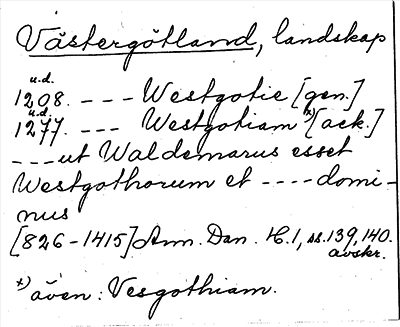 Västergötland, landskap
u.d.
1208. - - - Westgotie [gen.]
u.d.
1277. - - - Westgotiam x) [ack.]
- - - ut Waldemarus esset
Westgothorum et - - - - domi-
nus
[826-1415] Ann. Dan. H.1, ss. 139, 140.
avskr.
x) även: Vesgothiam.